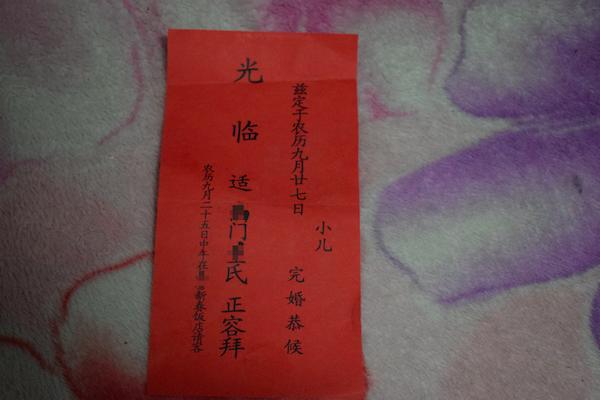 兹定于农历九月廿七日
小儿
完婚恭候
光临
适 门 氏 正容拜
农历九月二十五日中午在 新春饭店请客